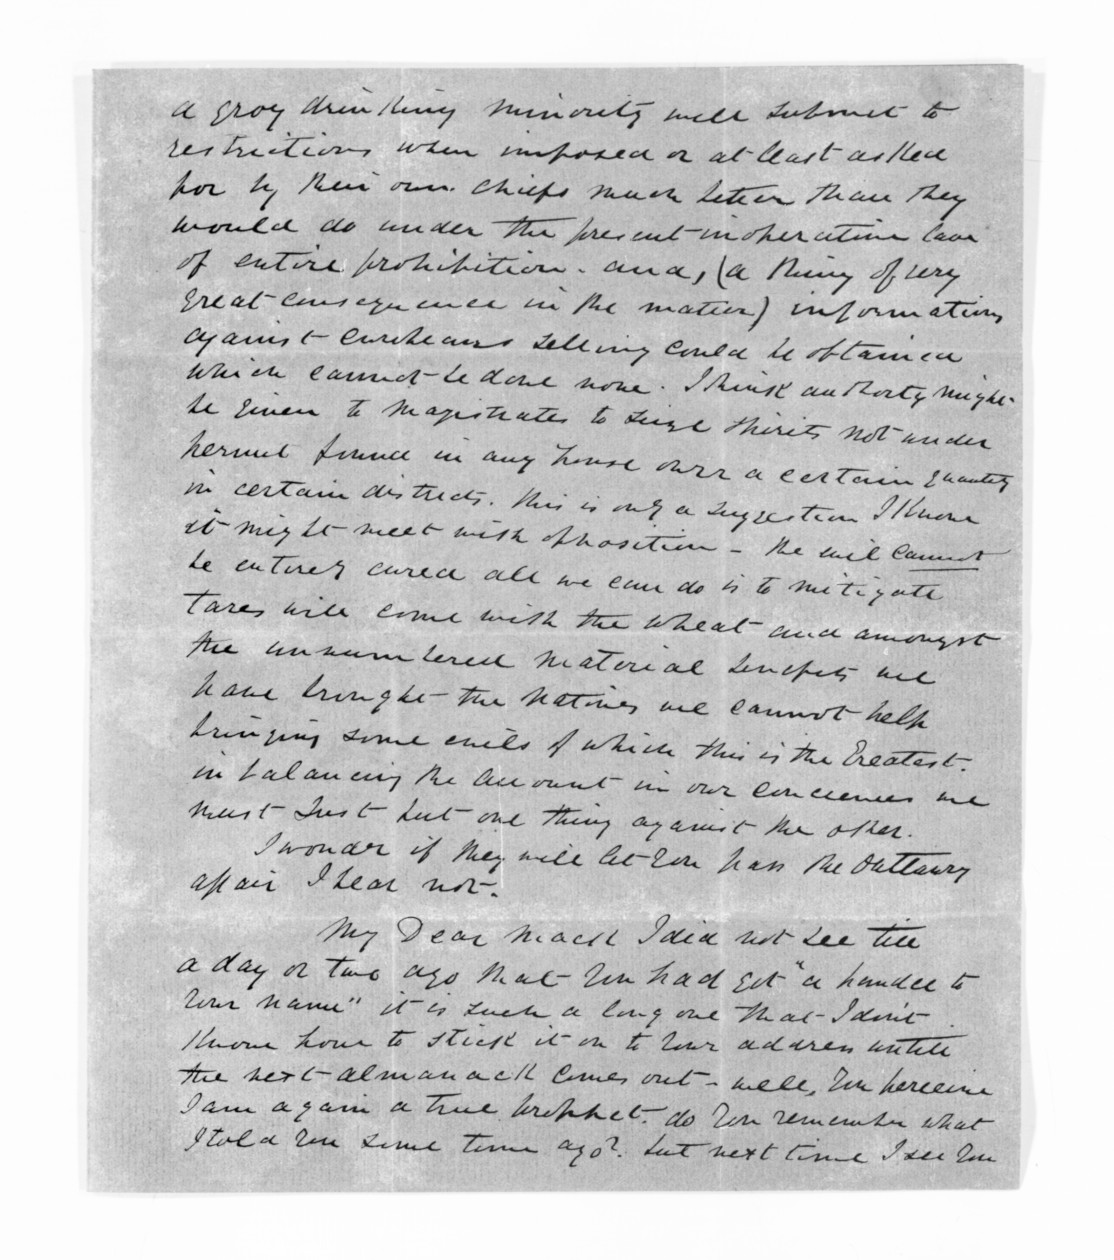 a grog drinking minority will submit to
restrictions when imposed or at least asked
for by their own chiefs much better than they
would do under the present inoperative law
of entire prohibition. and, (a thing of very
great consequence in the matter) information
against Europeans selling could be obtained
which cannot be done now. I think authority might
be given to Magistrates to seize spirits not under
permit found in any house over a certain quantity
in certain districts. this is only a suggestion I know
it might meet with opposition - the evil cannot
be entirely cured all we can do is to mitigate
tares will come with the wheat and amongst
the unnumbered material benefits we
have brought the natives we cannot help
bringing some evils of which this is the Greatest.
in balancing the account in our conciences we
must Just put one thing against the other.
I wonder if they will let you pass the Outlawry
affair I hear not.
My Dear Mack I did not see till
a day or two ago that you had got "a handle to
your name" it is such a long one that I dont
know how to stick it on to your address untill
the next almanack comes out - well, you perceive
I am again a true prophet. do you remember what
I told you some time ago? but next time I see you